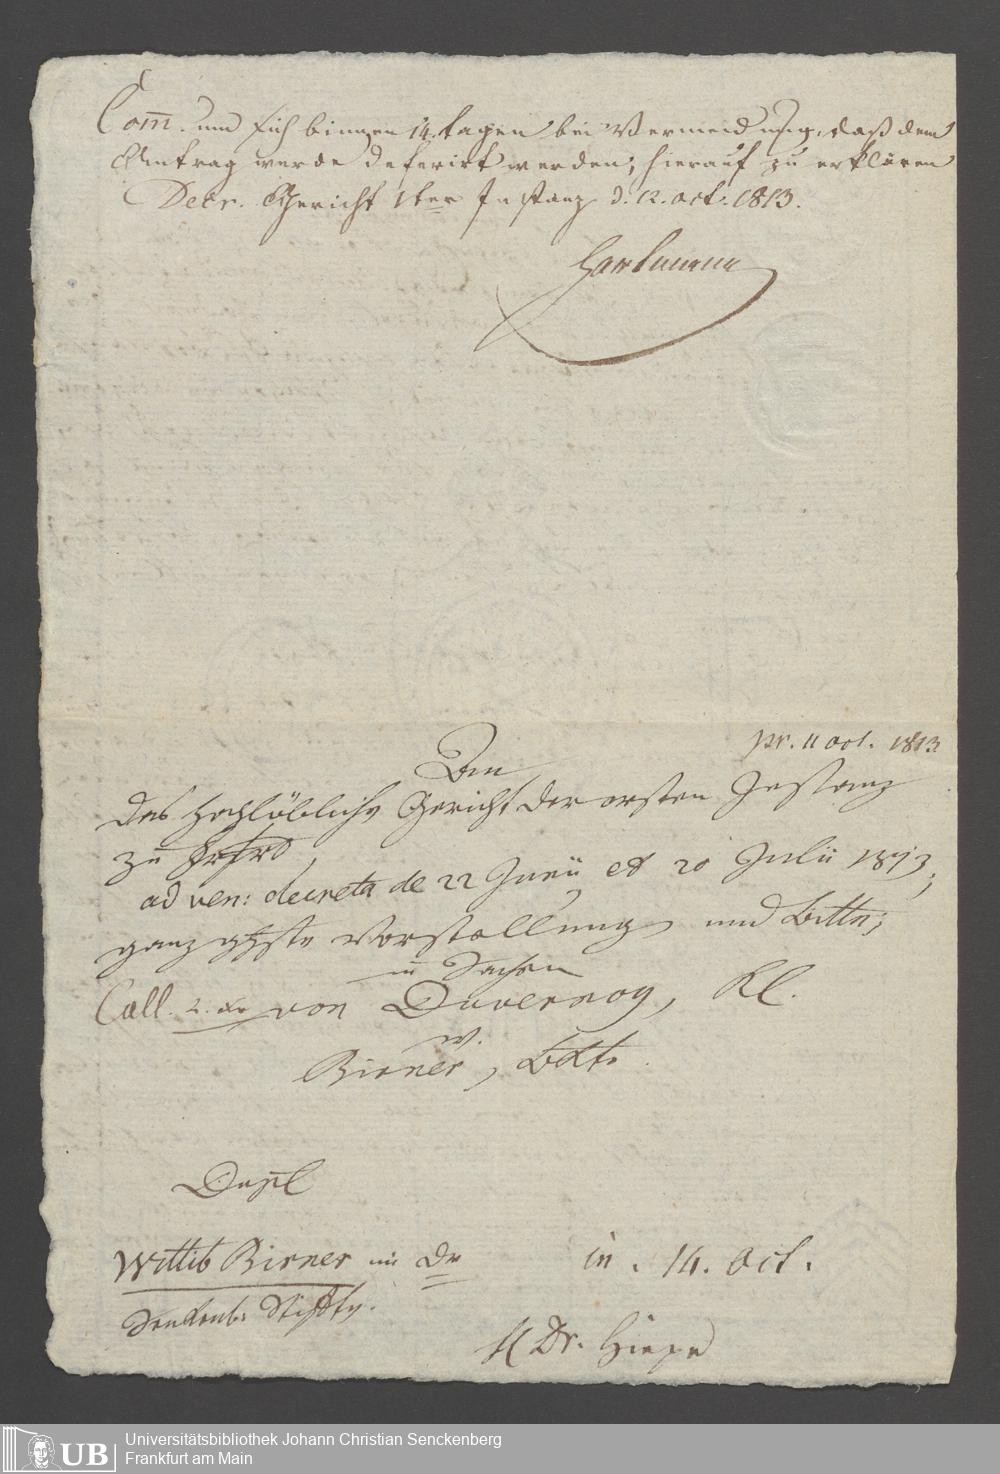 Com̅. um sich binnen 14. tagen bei Vermeidung, daß dem
Antrag werde deferirt werden, hierauf zu erklären
Decr. Gericht 1ter Instanz d. 12. oct. 1813.
Hartmann
pr. 11 oct. 1813
An
das hochlöbliche Gericht der ersten Instanz
zu
ad ven: decreta de 22 Junii et 20 Julii 1813,
ganz Vorstellung und Bitte;
in Sachen
Coll. von Duvernoy, Kl.
w.
Birner, Bekl.
Dupl
Wittib Birner Dr
in. 14. Oct.
Senkenb. Stiftg.
Dr. Hiepe
UB
Universitätsbibliothek Johann Christian Senckenberg
Frankfurt am Main